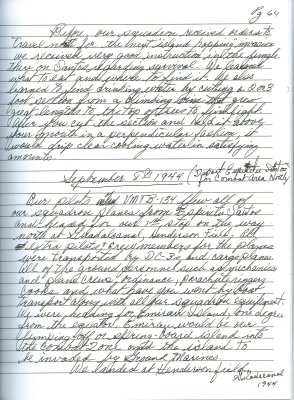 Pg 64
Before our squadron received orders to
travel north for the next island hopping invasion
we received very good instruction in the jungle
there on Santos regarding survival. We learned
what to eat and where to find it. We also
learned to find drinking water by cutting a 2 or 3
foot section from a climbing vine that grew
great lengths to the top of trees to find light
After you cut the section and held it above
your mouth in a perpendicular fashion, it
would drip clear cooling water in satisfying
amounts.
September 8th 1944 (Depart Espiritu Santos for Combat Area North)
Our pilots VMTB-134 flew all of
our squadron planes from Espiritu Santos
and headed for our 1st stop on the way
north at Guadalcanal, Henderson Field. The
extra pilots & crewmembers for the planes
were transported by DC-3s and cargo planes.
All of the ground personnel such as mechanics
and plane crews, ordinance, parachute rigging
cooks and what have you went by boat
transport along with all our squadron equipment.
We were heading for Emirau Island, one degree
from the equator. Emirau would be our
jumping off or spring-board island into
the Combat Zone and the island to
be invaded by Ground Marines.
We landed at Henderson field
Guadalcanal
1944